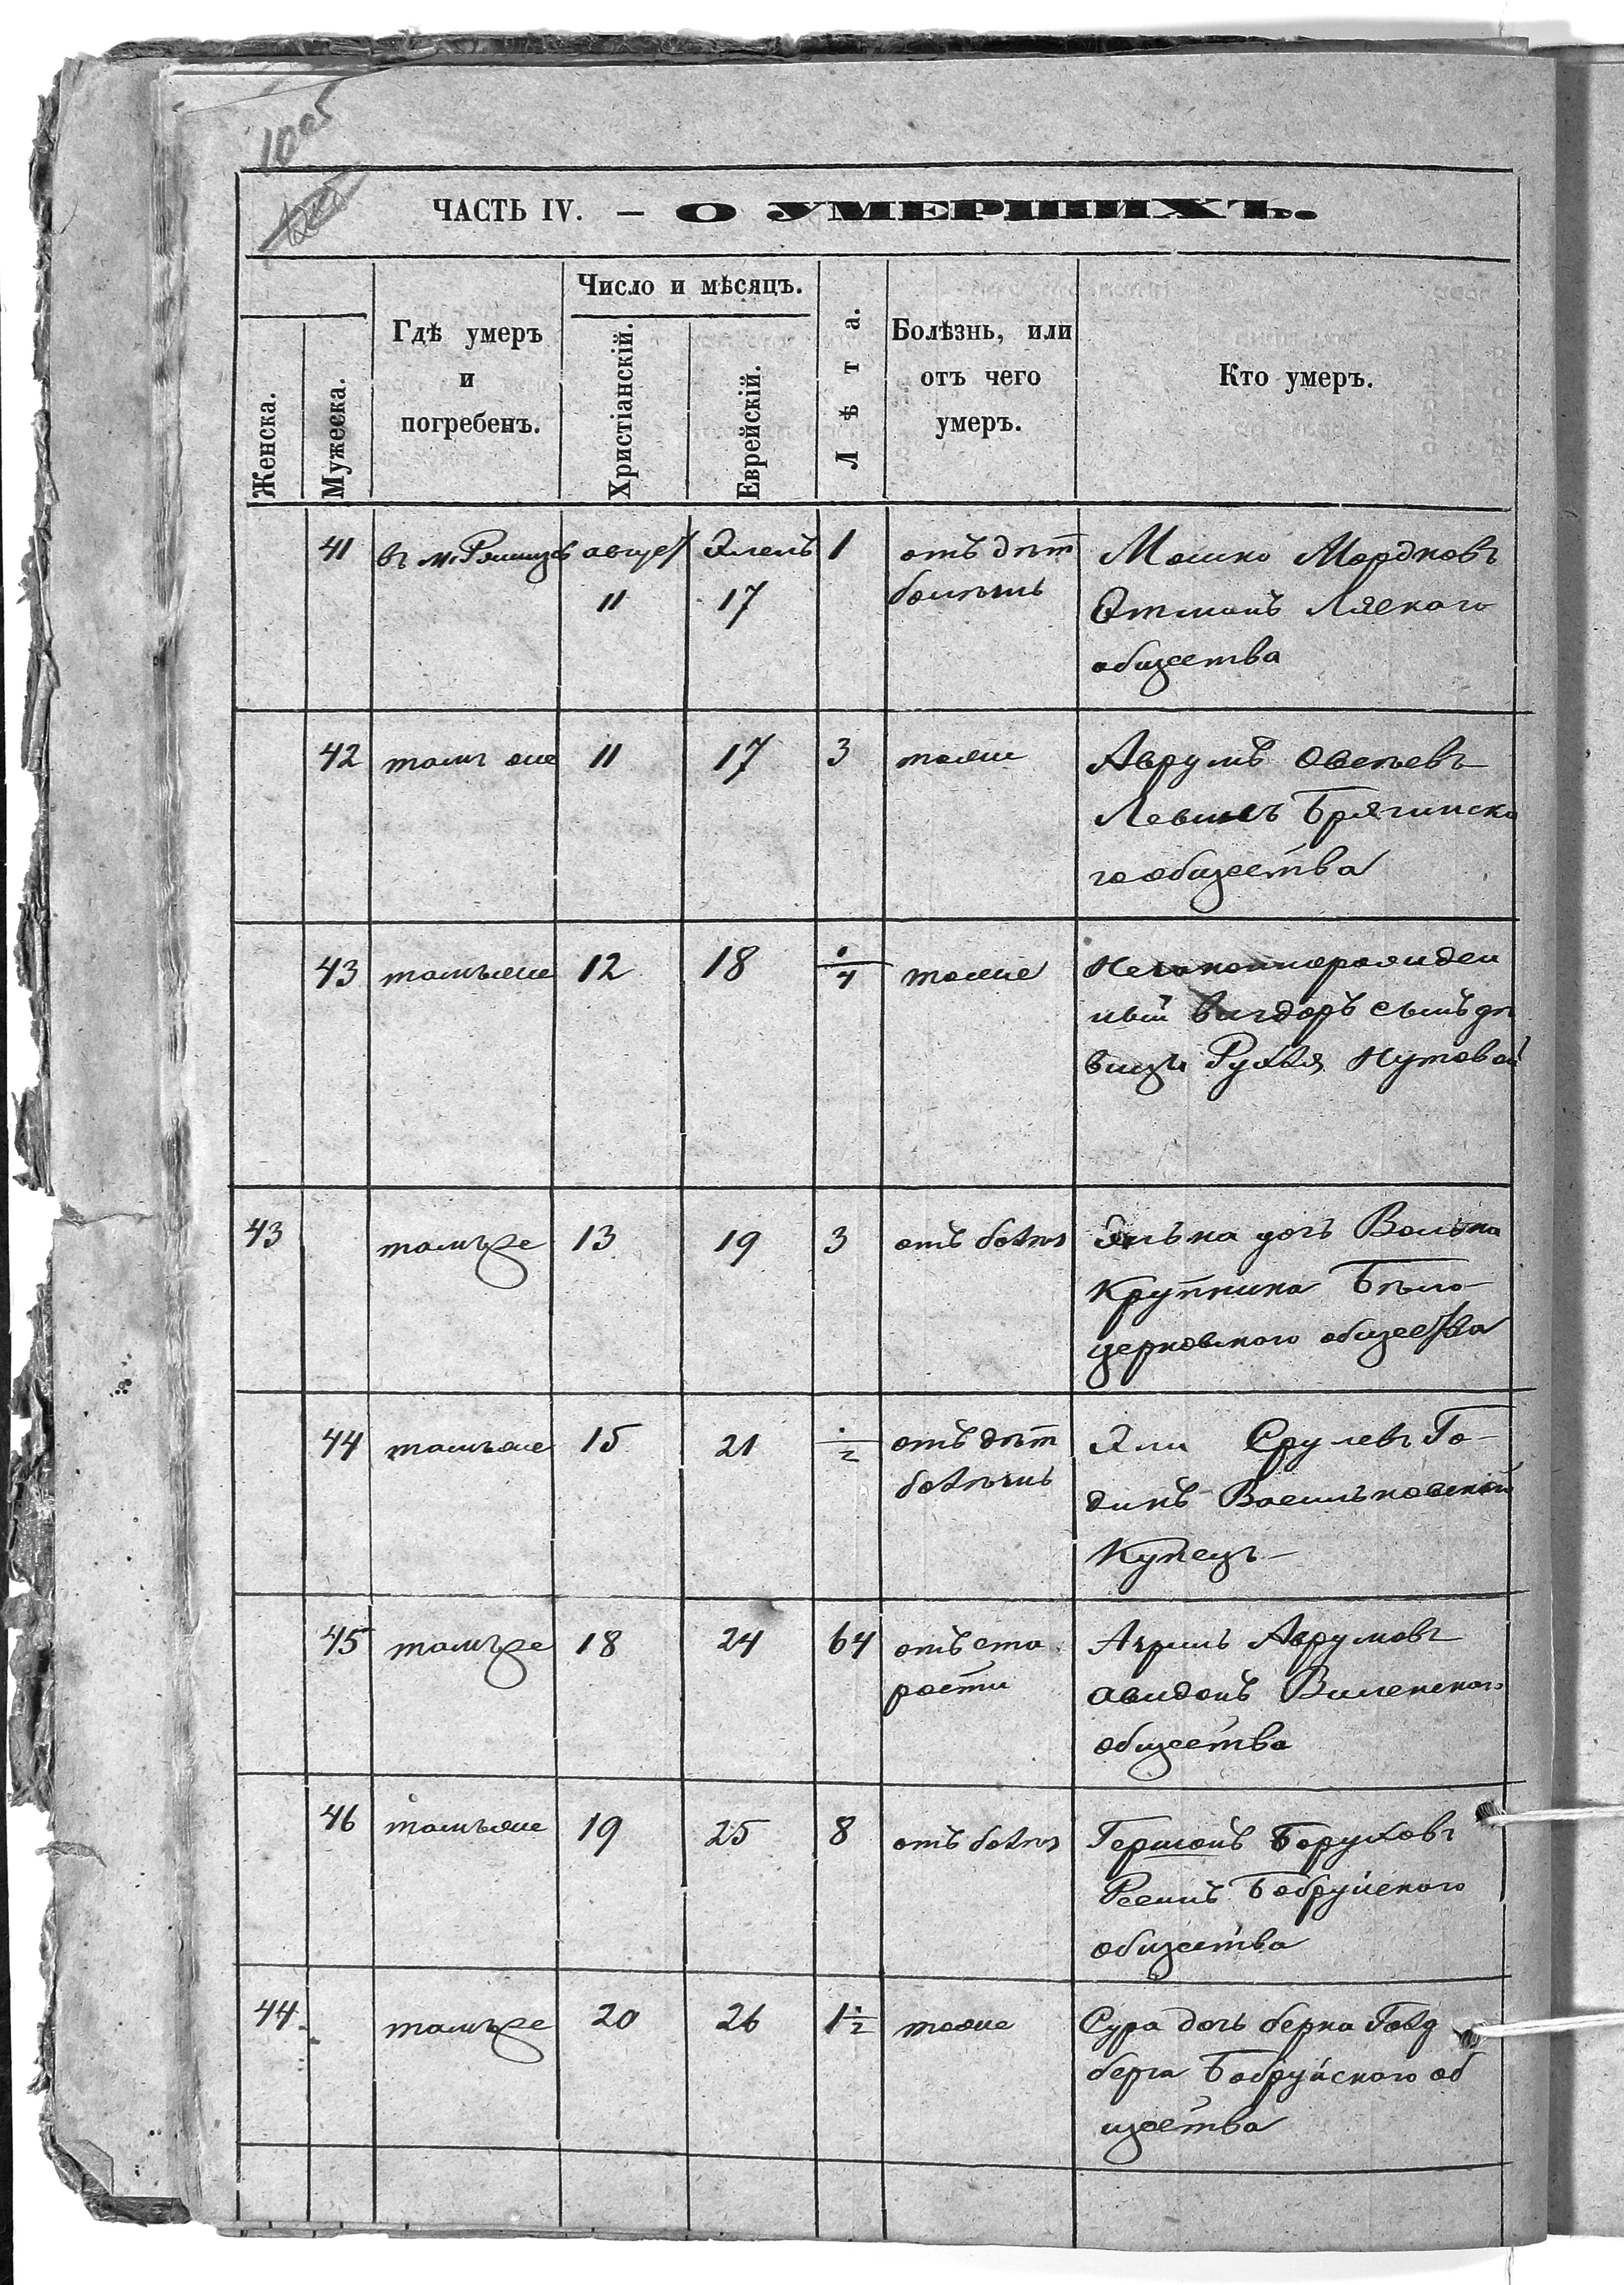 10об
ЧАСТЬ IV. — О УМЕРШИХЪ.
Женска.
Мужеска.
Гдѣ умеръ
и
погребенъ.
Число и мѣсяцъ.
Христіанскій.
Еврейскій.
Лѣта.
Болѣзнь, или
отъ чего
умеръ.
Кто умеръ.
41 въ м. август Элелъ 1 отъ дѣт Мошко Мордковъ
11 17 болѣзнь Этманъ Ляского
общества
42 тамъ же 11 17 3 тоже Аврумъ Овсѣевъ
Левинъ Брягинско
го общества
43 тамъже 12 18 1/4 тоже Незаконнорожден
ный Вигдоръ сынъ дѣ
вицы Рухля Нутовой
43 тамъже 13 19 3 отъ болѣз Элька дочь Волька
Крупника Бѣло-
церковского общества
44 тамъже 15 21 1/2 отъ дѣт Эли Срулевъ Го-
болѣзнь динъ Васильковский
Купецъ
45 тамъже 18 24 64 отъ ста Аврумовъ
рости Авидонъ Виленского
общества
46 тамъже 19 25 8 отъ болѣз Гершонъ Боруховъ
Бобруйского
общества
44 тамъже 20 26 1 1/2 тоже Сура дочь берка Голд
берга Бобруйского об
щества